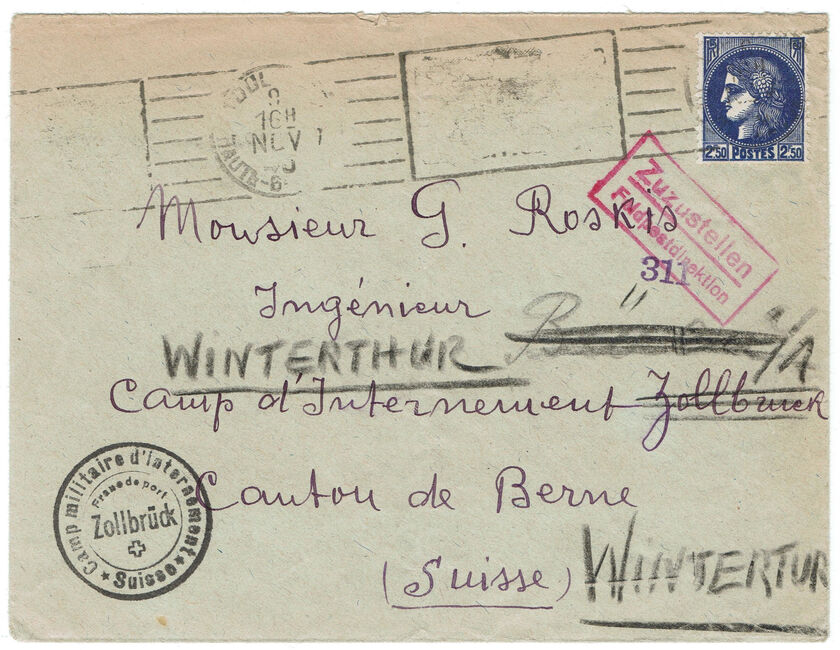 16H
NOV
HAUTE-G
2,50 POSTES 2,50
Zuzustellen
Feldpostdirektion
311
Monsieur G. Roskis
Ingénieur
WINTERTHUR
Camp d'Internement Zollbruck
Canton de Berne
(Suisse)
WINTERTUR
Camp militaire d'internement
Franc de port
Zollbrück
Suisse